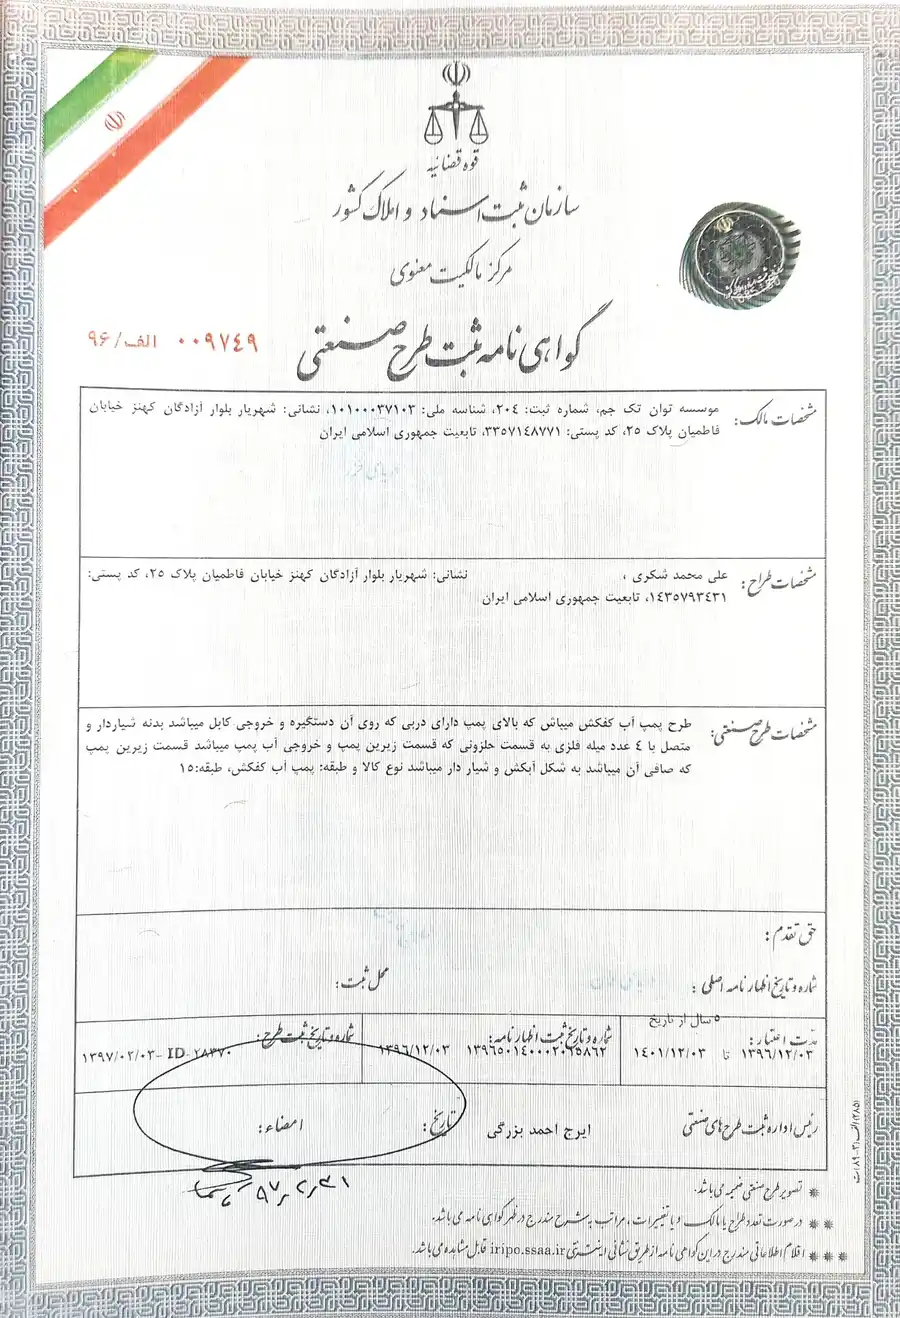 قوه قضائیه
سازمان ثبت اسناد و املاک کشور
مرکز مالکیت معنوی
گواهی نامه ثبت طرح صنعتی
۰۰۹۷٤۹ الف/۹۶
مشخصات مالک: موسسه توان تک جم، شماره ثبت: ۲۰٤، شناسه ملی: ۱۰۱۰۰۰۳۷۱۰۳، نشانی: شهریار بلوار آزادگان کهنز خیابان
فاطمیان پلاک ۲۵، کد پستی: ۳۳۵۷۱٤۸۷۷۱، تابعیت جمهوری اسلامی ایران
مشخصات طراح: علی محمد شکری ، نشانی: شهریار بلوار آزادگان کهنز خیابان فاطمیان پلاک ۲۵، کد پستی:
۱٤۳۵۷۹۳٤۳۱، تابعیت جمهوری اسلامی ایران
مشخصات طرح صنعتی: طرح پمپ آب کفکش میباش که بالای پمپ دارای دربی که روی آن دستگیره و خروجی کابل میباشد بدنه شیاردار و
متصل با ٤ عدد میله فلزی به قسمت حلزونی که قسمت زیرین پمپ و خروجی آب پمپ میباشد قسمت زیرین پمپ
که صافی آن میباشد به شکل آبکش و شیار دار میباشد نوع کالا و طبقه: پمپ آب کفکش، طبقه:۱۵
حق تقدم:
شماره و تاریخ اظهارنامه اصلی :
محل ثبت:
مدت اعتبار: ۵ سال از تاریخ
۱۳۹۶/۱۲/۰۳ تا ۱٤۰۱/۱۲/۰۳
شماره و تاریخ ثبت اظهارنامه:
۱۳۹۶۵۰۱٤۰۰۰۲۰۲۵۸۶۲ ۱۳۹۶/۱۲/۰۳
شماره و تاریخ ثبت طرح:
۲۸۳۷۰ ID -۱۳۹۷/۰۲/۰۳
رئیس اداره ثبت طرح های صنعتی
ایرج احمد بزرگی
تاریخ:
امضاء:
۹۷٫۲٫۳۱
* تصویر طرح صنعتی ضمیمه می باشد.
** در صورت تعدد طراح یا مالک و یا تغییرات، مراتب به شرح مندرج در ظهر گواهی نامه می باشد.
*** اقلام اطلاعاتی مندرج در این گواهی نامه از طریق نشانی اینترنتی iripo.ssaa.ir قابل مشاهده می باشد.